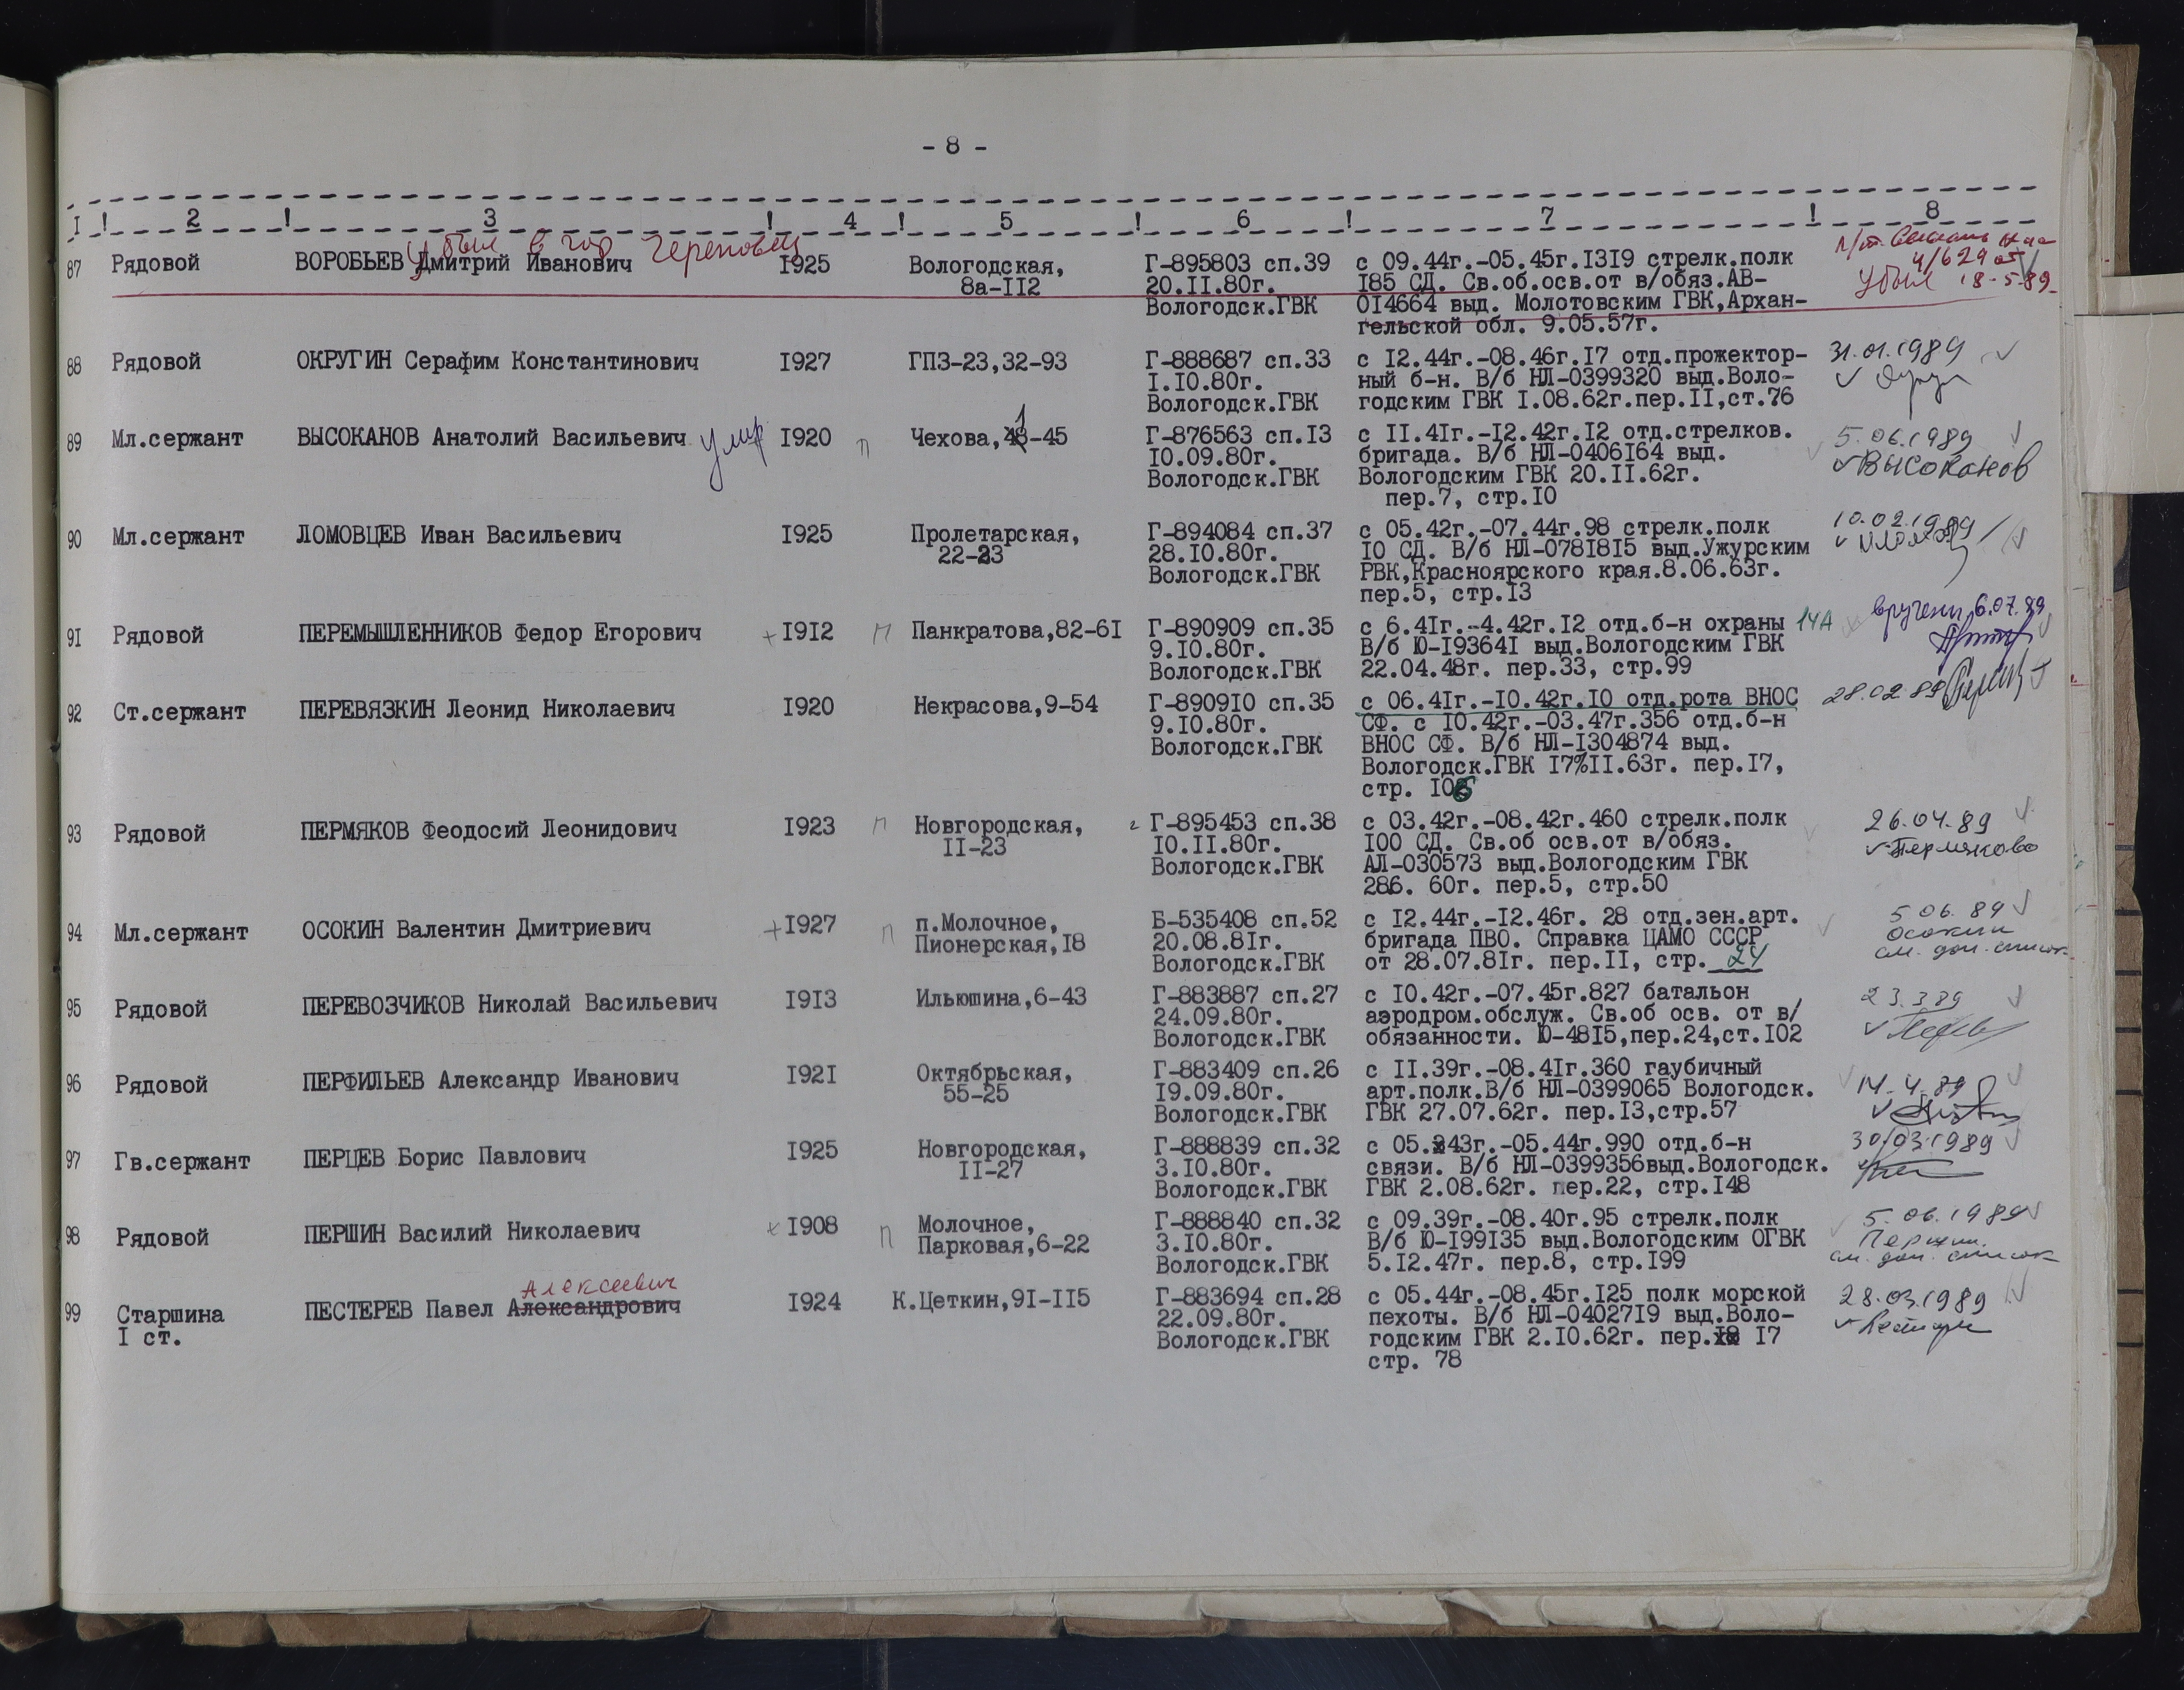 - 8 -
I ! 2 ! 3 ! 4 ! 5 ! 6 ! 7 ! 8
Убыл в гор Череповец
87 Рядовой ВОРОБЬЕВ Дмитрий Иванович I925 Вологодская, Г-895803 сп.39 с 09.44г.-05.45г.I3I9 стрелк.полк
8а-II2 20.II.80г. I85 СД. Св.об.осв.от в/обяз.АВ- Убыл 18-5-89
Вологодск.ГВК 0I4664 выд. Молотовским ГВК,Архан-
гельской обл. 9.05.57г.
88 Рядовой ОКРУГИН Серафим Константинович I927 ГПЗ-23,32-93 Г-888687 сп.33 с I2.44г.-08.46г.I7 отд.прожектор- 31.01.1989
I.I0.80г. ный б-н. В/б НЛ-0399320 выд.Воло-
Вологодск.ГВК годским ГВК I.08.62г.пер.II,ст.76
89 Мл.сержант ВЫСОКАНОВ Анатолий Васильевич умер I920 п Чехова,48-45 Г-876563 сп.I3 с II.4Iг.-I2.42г.I2 отд.стрелков. 5.06.1989
I0.09.80г. бригада. В/б НЛ-0406I64 выд. Высоканов
Вологодск.ГВК Вологодским ГВК 20.II.62г.
пер.7, стр.I0
90 Мл.сержант ЛОМОВЦЕВ Иван Васильевич I925 Пролетарская, Г-894084 сп.37 с 05.42г.-07.44г.98 стрелк.полк 10.02.1989
22-23 28.I0.80г. I0 СД. В/б НЛ-078I8I5 выд.Ужурским
Вологодск.ГВК РВК,Красноярского края.8.06.63г.
пер.5, стр.I3
9I Рядовой ПЕРЕМЫШЛЕННИКОВ Федор Егорович + I9I2 п Панкратова,82-6I Г-890909 сп.35 с 6.4Iг.-4.42г.I2 отд.б-н охраны 14А вручены 6.07.89
9.I0.80г. В/б Ю-I9364I выд.Вологодским ГВК
Вологодск.ГВК 22.04.48г. пер.33, стр.99
92 Ст.сержант ПЕРЕВЯЗКИН Леонид Николаевич I920 Некрасова,9-54 Г-8909I0 сп.35 с 06.4Iг.-I0.42г.I0 отд.рота ВНОС 28.02.89
9.I0.80г. СФ. с I0.42г.-03.47г.356 отд.б-н
Вологодск.ГВК ВНОС СФ. В/б НЛ-I304874 выд.
Вологодск.ГВК I7%II.63г. пер.I7,
стр. I06
93 Рядовой ПЕРМЯКОВ Феодосий Леонидович I923 п Новгородская, Г-895453 сп.38 с 03.42г.-08.42г.460 стрелк.полк 26.04.89
II-23 I0.II.80г. I00 СД. Св.об осв.от в/обяз. Пермякова
Вологодск.ГВК АЛ-030573 выд.Вологодским ГВК
286. 60г. пер.5, стр.50
94 Мл.сержант ОСОКИН Валентин Дмитриевич + I927 п п.Молочное, Б-535408 сп.52 с I2.44г.-I2.46г. 28 отд.зен.арт. 5 06. 89
Пионерская,I8 20.08.8Iг. бригада ПВО. Справка ЦАМО СССР Осокин
Вологодск.ГВК от 28.07.8Iг. пер.II, стр. 24 см. доп. список
95 Рядовой ПЕРЕВОЗЧИКОВ Николай Васильевич I9I3 Ильюшина,6-43 Г-883887 сп.27 с I0.42г.-07.45г.827 батальон 23.3 89
24.09.80г. аэродром.обслуж. Св.об осв. от в/
Вологодск.ГВК обязанности. Ю-48I5,пер.24,ст.I02
96 Рядовой ПЕРФИЛЬЕВ Александр Иванович I92I Октябрьская, Г-883409 сп.26 с II.39г.-08.4Iг.360 гаубичный 14.4.89
55-25 I9.09.80г. арт.полк.В/б НЛ-0399065 Вологодск.
Вологодск.ГВК ГВК 27.07.62г. пер.I3,стр.57
97 Гв.сержант ПЕРЦЕВ Борис Павлович I925 Новгородская, Г-888839 сп.32 с 05.43г.-05.44г.990 отд.б-н 30/03.1989
II-27 3.I0.80г. связи. В/б НЛ-0399356выд.Вологодск.
Вологодск.ГВК ГВК 2.08.62г. пер.22, стр.I48
98 Рядовой ПЕРШИН Василий Николаевич + I908 п Молочное, Г-888840 сп.32 с 09.39г.-08.40г.95 стрелк.полк 5.06.1989
Парковая,6-22 3.I0.80г. В/б Ю-I99I35 выд.Вологодским ОГВК Першин
Вологодск.ГВК 5.I2.47г. пер.8, стр.I99 см. доп. список
Алексеевич
99 Старшина ПЕСТЕРЕВ Павел Александрович I924 К.Цеткин,9I-II5 Г-883694 сп.28 с 05.44г.-08.45г.I25 полк морской 28.03.1989
I ст. 22.09.80г. пехоты. В/б НЛ-04027I9 выд.Воло-
Вологодск.ГВК годским ГВК 2.I0.62г. пер.I8 I7
стр. 78